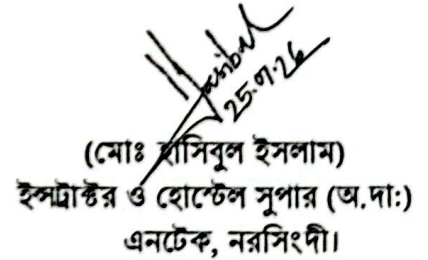 Hasibul
25.07.26
(মোঃ হাসিবুল ইসলাম)
ইন্সট্রাক্টর ও হোস্টেল সুপার (অ.দা:)
এনটেক, নরসিংদী।